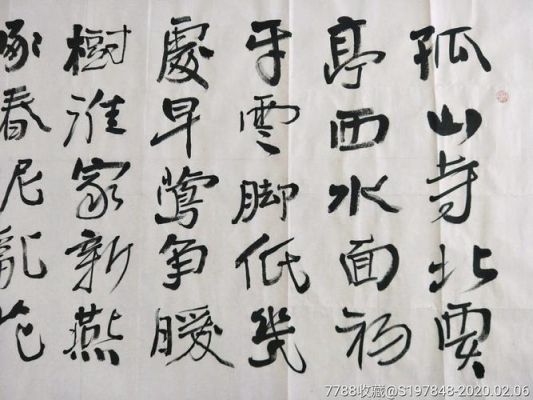 孤山寺北賈
亭西水面初
平雲脚低幾
處早鶯争暖
樹谁家新燕
啄春泥亂花
7788收藏@S197848-2020.02.06